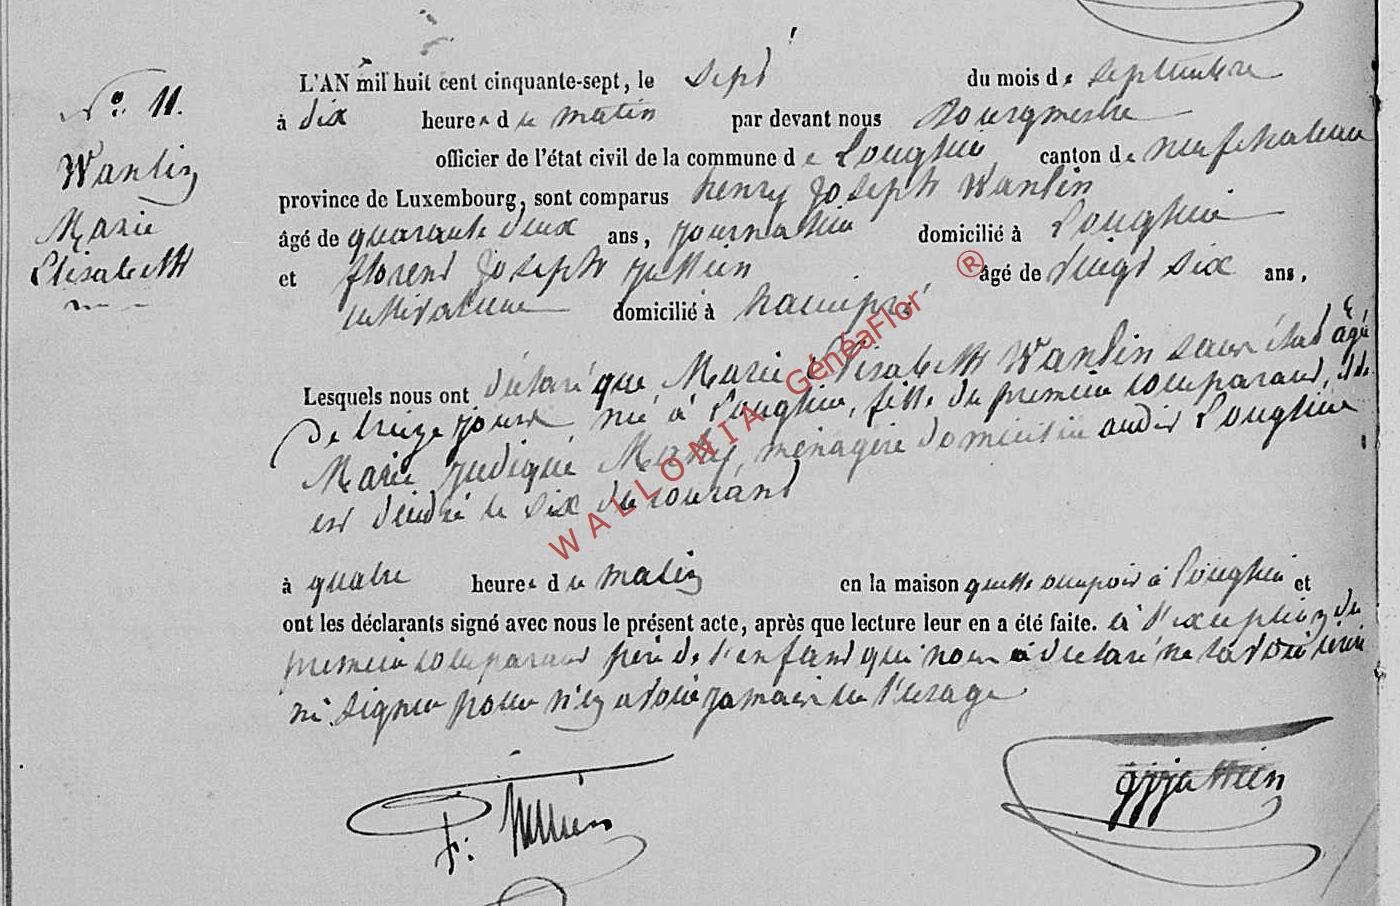 N° 11.
Wanlin
Marie
Elisabeth
L'AN mil huit cent cinquante-sept, le sept du mois de septembre
à dix heures du matin par devant nous Bourgmestre
officier de l'état civil de la commune de Longlier canton de neufchateau
province de Luxembourg, sont comparus henry Joseph Wanlin
âgé de quarante deux ans, journalier domicilié à Longlier
et florent Joseph âgé de vingt six ans,
cultivateur domicilié à hamipré
Lesquels nous ont déclaré que Marie Elisabeth Wanlin sans état âgé
de treize jours né à Longlier, fille du premier comparant, et de
Marie ménagère domicilié audit Longlier
est décédé le six du courant
à quatre heures du matin en la maison quelle occupoit à Longlier et
ont les déclarants signé avec nous le présent acte, après que lecture leur en a été faite. à l'exception du
premier comparant père de l'enfant qui nous a déclaré ne savoir écrire
ni signer pour n'en avoir jamais eu l'usage
WALLONIA GénéaFlor ®